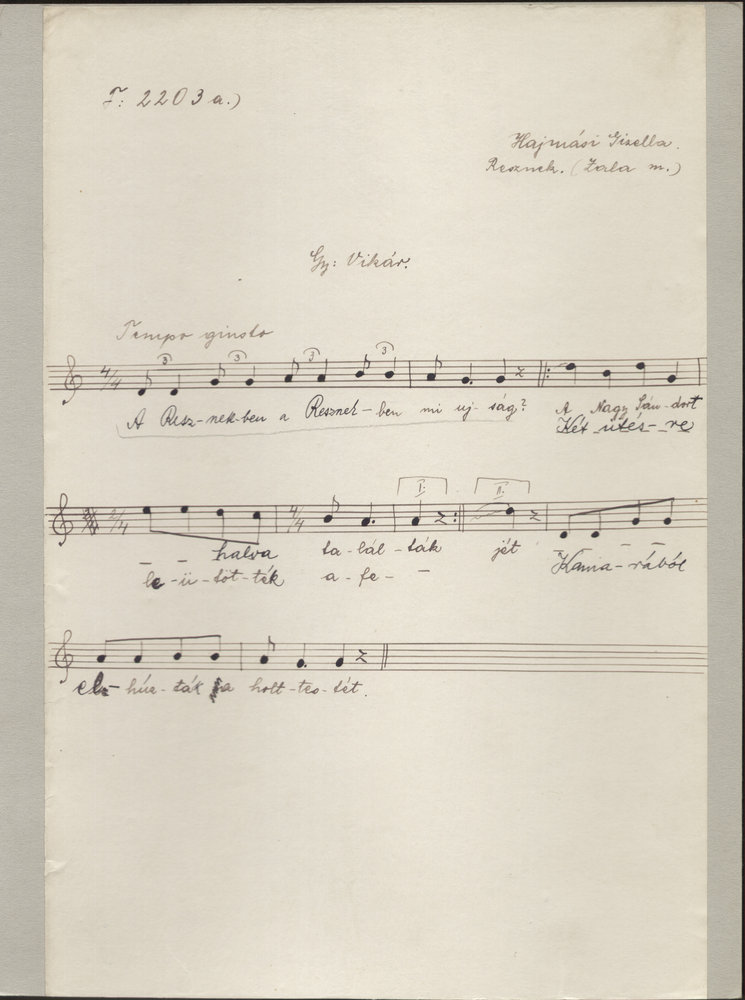 F: 2203 a.)
Hajmási Gizella.
Resznek. (Zala m.)
Gy: Vikár.
Tempo giusto
4/4 3 3 3 3
A Resz-nek-ben a Resznek-ben mi uj-ság? A Nagy Sán-dort
Két ütés-re
2/4 4/4 I. II.
halva ta-lál-ták jét Kama-rából
le-ü-töt-ték a-fe-
el-húz-ták a holt-tes-tét.